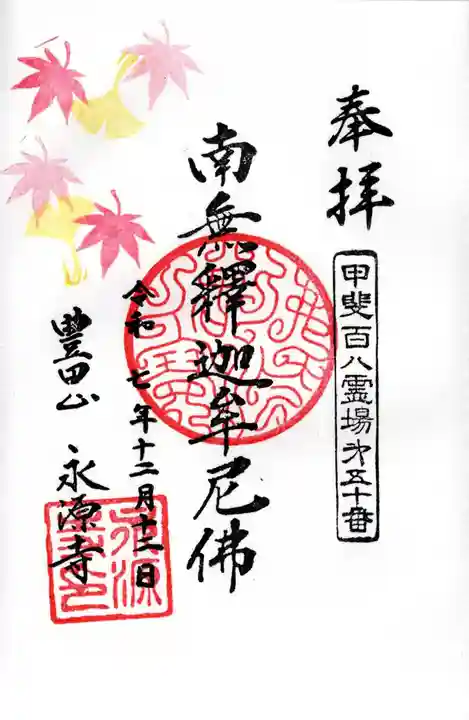 奉拝
甲斐百八霊場第五十番
南無釋迦牟尼佛
令和七年十二月十三日
豊田山 永源寺